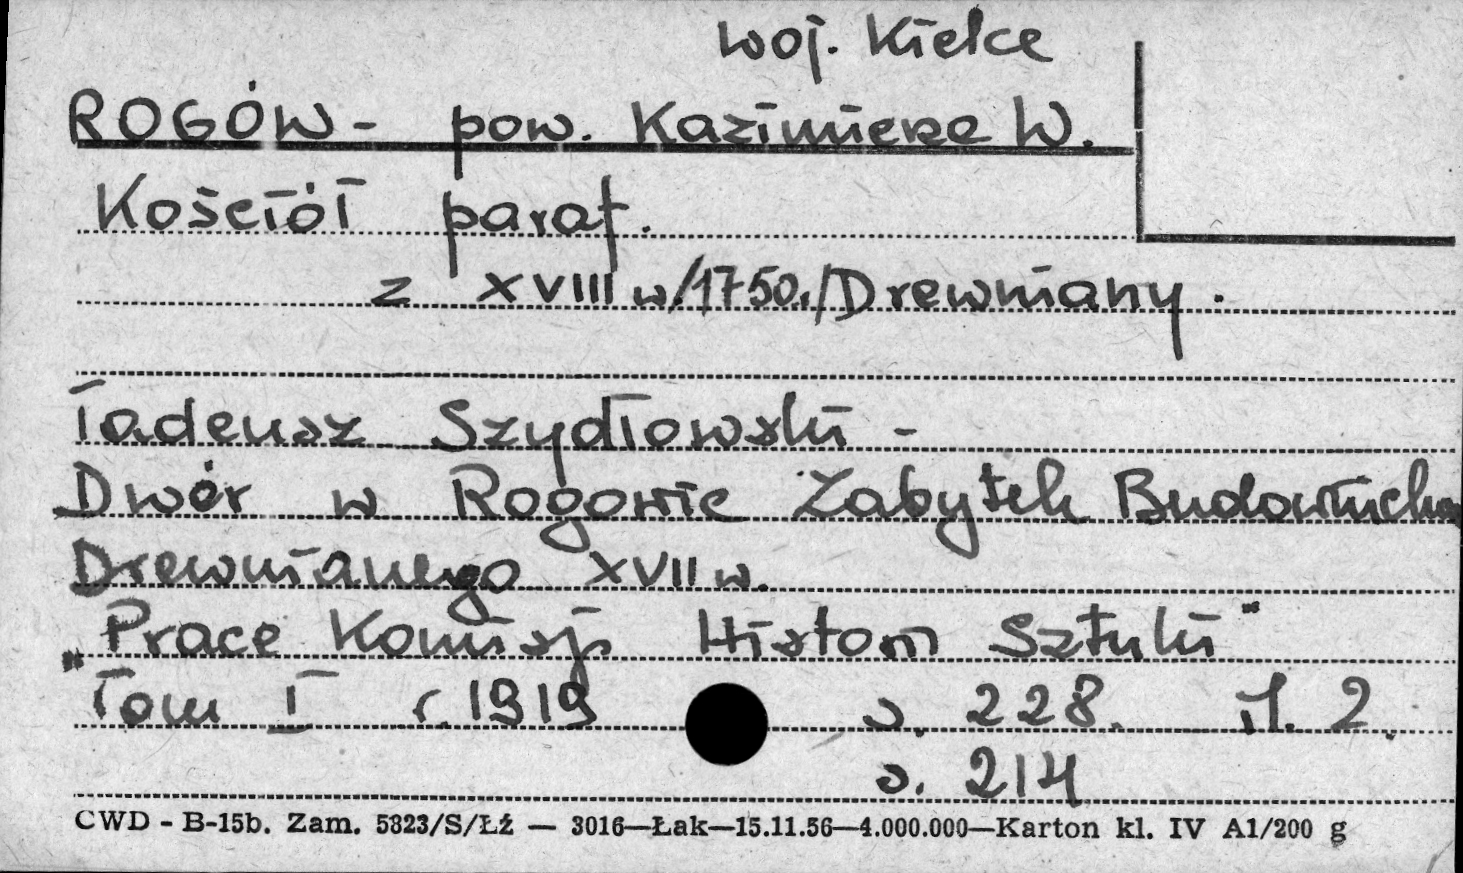 woj. Kielce
ROGÓW - pow. Kazimierza W.
Kościół paraf.
z XVIII w./1750r./Drewniany.
Tadeusz Szydłowski -
Dwór w Rogowie Zabytek Budownictwa
Drewnianego XVII w.
"Prace Komisji Historii Sztuki"
Tom I r. 1919 s. 228. il. 2.
s. 214
CWD - B-15b. Zam. 5823/S/ŁŹ — 3016—Łak—15.11.56—4.000.000—Karton kl. IV A1/200 g